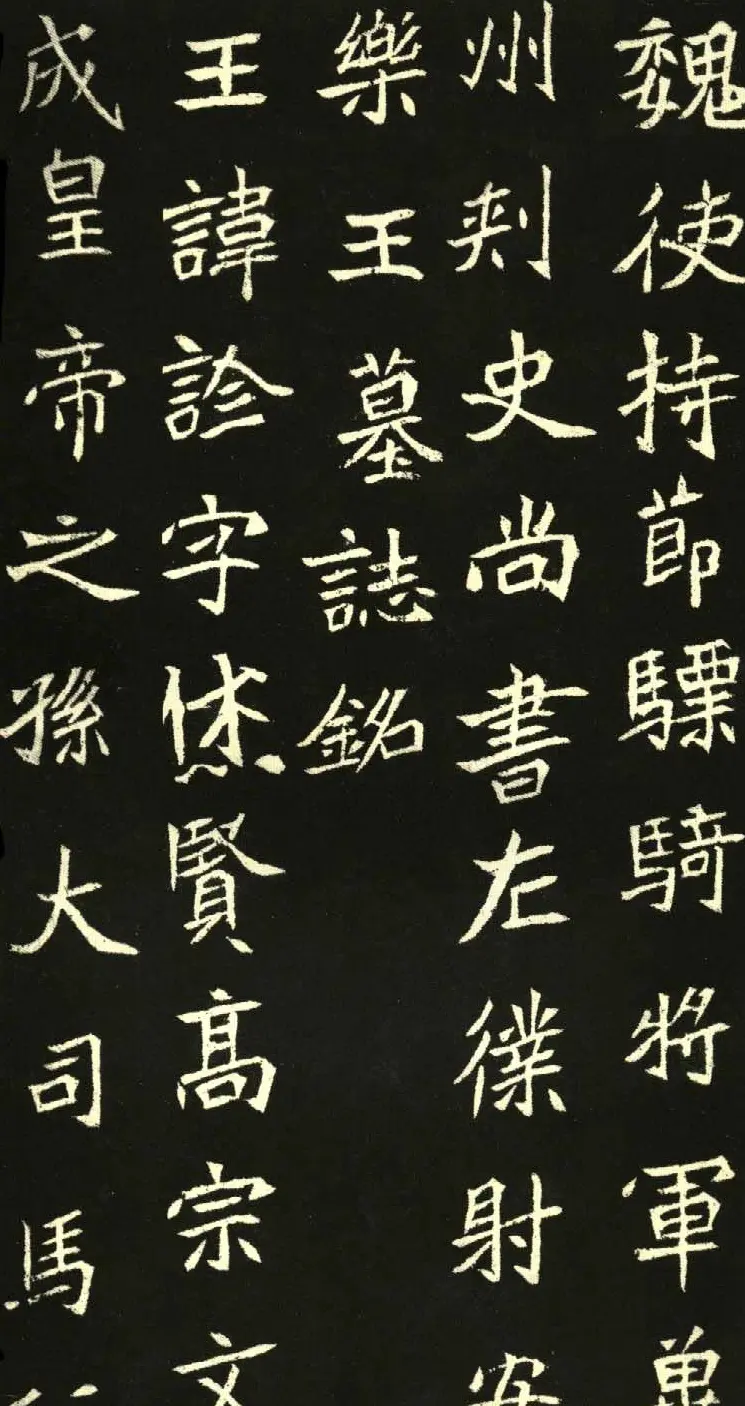 魏使持節驃騎將軍冀
州刾史尚書左僕射安
樂王墓誌銘
王諱詮字烋賢髙宗文
成皇帝之孫大司馬